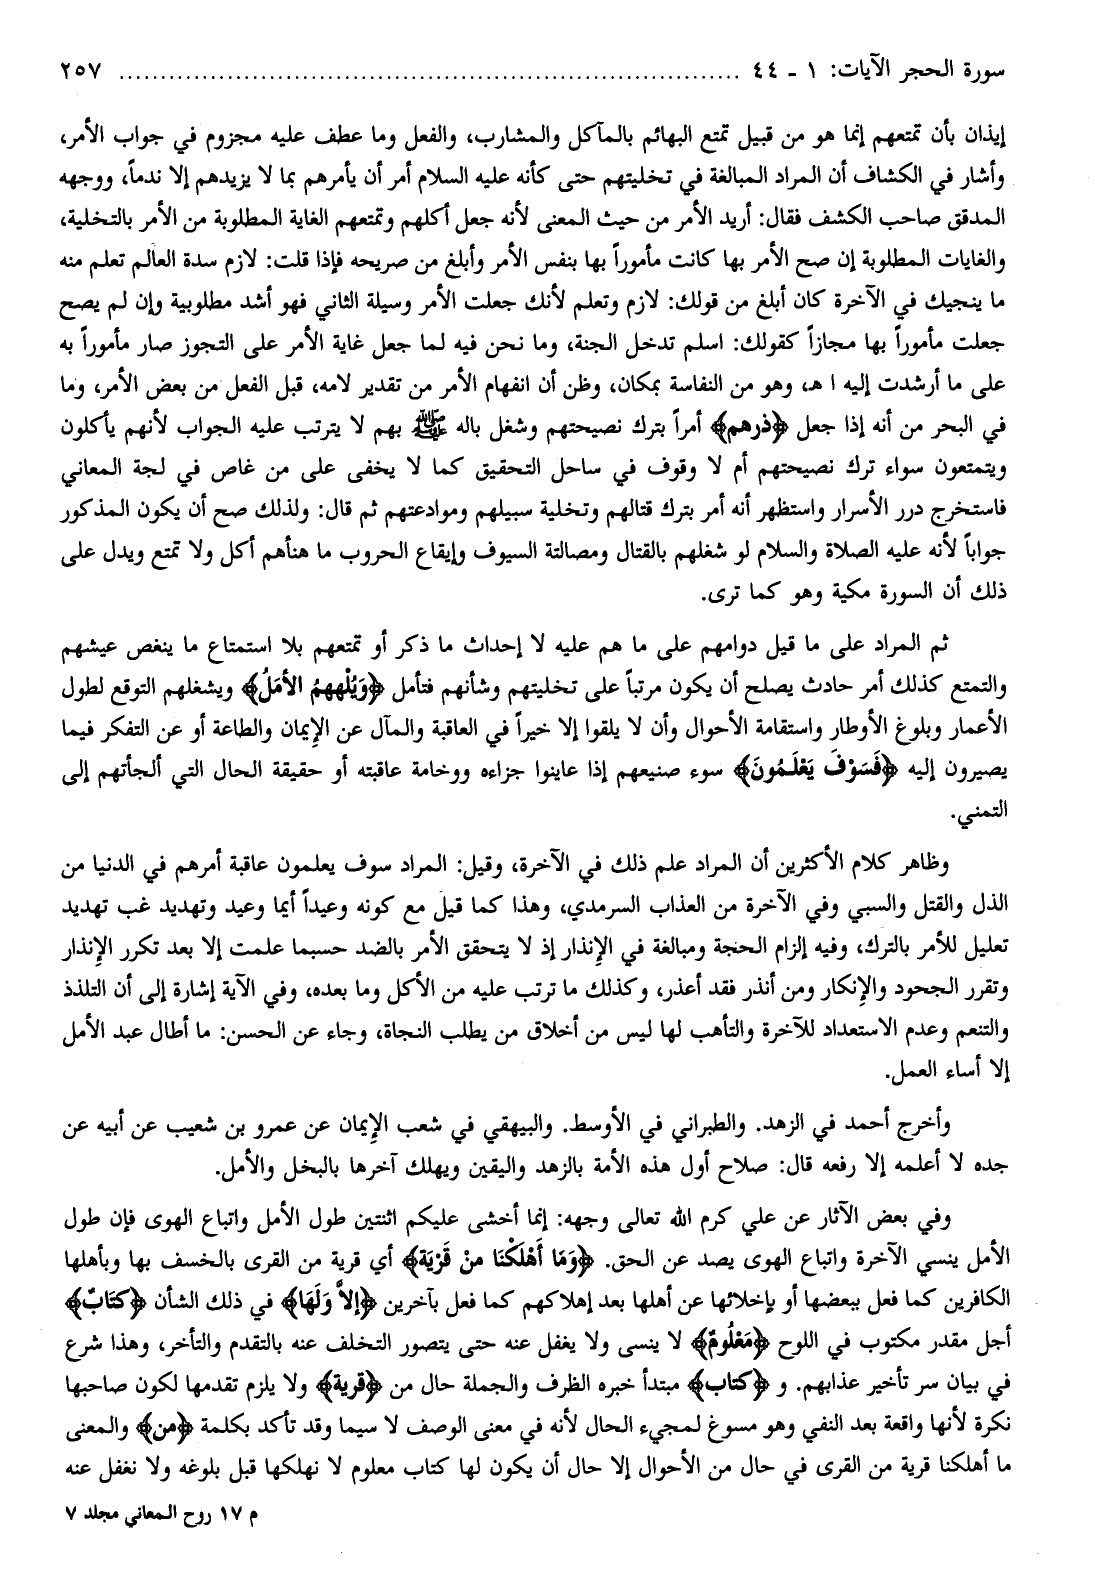 سورة الحجر الآيات: ١ - ٤٤ ........................................................................... ٢٥٧
إيذان بأن تمتعهم إنما هو من قبيل تمتع البهائم بالمآكل والمشارب، والفعل وما عطف عليه مجزوم في جواب الأمر،
وأشار في الكشاف أن المراد المبالغة في تخليتهم حتى كأنه عليه السلام أمر أن يأمرهم بما لا يزيدهم إلا ندماً، ووجهه
المدقق صاحب الكشف فقال: أريد الأمر من حيث المعنى لأنه جعل أكلهم وتمتعهم الغاية المطلوبة من الأمر بالتخلية،
والغايات المطلوبة إن صح الأمر بها كانت مأموراً بها بنفس الأمر وأبلغ من صريحه فإذا قلت: لازم سدة العالم تعلم منه
ما ينجيك في الآخرة كان أبلغ من قولك: لازم وتعلم لأنك جعلت الأمر وسيلة الثاني فهو أشد مطلوبية وإن لم يصح
جعلت مأموراً بها مجازاً كقولك: اسلم تدخل الجنة، وما نحن فيه لما جعل غاية الأمر على التجوز صار مأموراً به
على ما أرشدت إليه ا هـ، وهو من النفاسة بمكان، وظن أن انفهام الأمر من تقدير لامه، قبل الفعل من بعض الأمر، وما
في البحر من أنه إذا جعل ﴿ذرهم﴾ أمراً بترك نصيحتهم وشغل باله ﷺ بهم لا يترتب عليه الجواب لأنهم يأكلون
ويتمتعون سواء ترك نصيحتهم أم لا وقوف في ساحل التحقيق كما لا يخفى على من غاص في لجة المعاني
فاستخرج درر الأسرار واستظهر أنه أمر بترك قتالهم وتخلية سبيلهم وموادعتهم ثم قال: ولذلك صح أن يكون المذكور
جواباً لأنه عليه الصلاة والسلام لو شغلهم بالقتال ومصالتة السيوف وإيقاع الحروب ما هنأهم أكل ولا تمتع ويدل على
ذلك أن السورة مكية وهو كما ترى.
ثم المراد على ما قيل دوامهم على ما هم عليه لا إحداث ما ذكر أو تمتعهم بلا استمتاع ما ينغص عيشهم
والتمتع كذلك أمر حادث يصلح أن يكون مرتباً على تخليتهم وشأنهم فتأمل ﴿وَيُلْهِهِمُ الأمَلُ﴾ ويشغلهم التوقع لطول
الأعمار وبلوغ الأوطار واستقامة الأحوال وأن لا يلقوا إلا خيراً في العاقبة والمآل عن الإيمان والطاعة أو عن التفكر فيما
يصيرون إليه ﴿فَسَوْفَ يَعْلَمُونَ﴾ سوء صنيعهم إذا عاينوا جزاءه ووخامة عاقبته أو حقيقة الحال التي ألجأتهم إلى
التمني.
وظاهر كلام الأكثرين أن المراد علم ذلك في الآخرة، وقيل: المراد سوف يعلمون عاقبة أمرهم في الدنيا من
الذل والقتل والسبي وفي الآخرة من العذاب السرمدي، وهذا كما قيل مع كونه وعيداً أيما وعيد وتهديد غب تهديد
تعليل للأمر بالترك، وفيه إلزام الحجة ومبالغة في الإنذار إذ لا يتحقق الأمر بالضد حسبما علمت إلا بعد تكرر الإنذار
وتقرر الجحود والإنكار ومن أنذر فقد أعذر، وكذلك ما ترتب عليه من الأكل وما بعده، وفي الآية إشارة إلى أن التلذذ
والتنعم وعدم الاستعداد للآخرة والتأهب لها ليس من أخلاق من يطلب النجاة، وجاء عن الحسن: ما أطال عبد الأمل
إلا أساء العمل.
وأخرج أحمد في الزهد. والطبراني في الأوسط. والبيهقي في شعب الإيمان عن عمرو بن شعيب عن أبيه عن
جده لا أعلمه إلا رفعه قال: صلاح أول هذه الأمة بالزهد واليقين ويهلك آخرها بالبخل والأمل.
وفي بعض الآثار عن علي كرم الله تعالى وجهه: إنما أخشى عليكم اثنتين طول الأمل واتباع الهوى فإن طول
الأمل ينسي الآخرة واتباع الهوى يصد عن الحق. ﴿وَمَا أَهْلَكْنَا مِنْ قَرْيَة﴾ أي قرية من القرى بالخسف بها وبأهلها
الكافرين كما فعل ببعضها أو بإخلائها عن أهلها بعد إهلاكهم كما فعل بآخرين ﴿إلاَّ وَلَهَا﴾ في ذلك الشأن ﴿كتَابٌ﴾
أجل مقدر مكتوب في اللوح ﴿مَعْلُومٌ﴾ لا ينسى ولا يغفل عنه حتى يتصور التخلف عنه بالتقدم والتأخر، وهذا شرع
في بيان سر تأخير عذابهم. و ﴿كتاب﴾ مبتدأ خبره الظرف والجملة حال من ﴿قرية﴾ ولا يلزم تقدمها لكون صاحبها
نكرة لأنها واقعة بعد النفي وهو مسوغ لمجيء الحال لأنه في معنى الوصف لا سيما وقد تأكد بكلمة ﴿من﴾ والمعنى
ما أهلكنا قرية من القرى في حال من الأحوال إلا حال أن يكون لها كتاب معلوم لا نهلكها قبل بلوغه ولا نغفل عنه
م ١٧ روح المعاني مجلد ٧